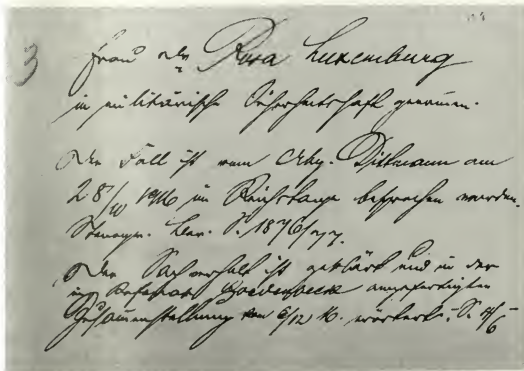 3
Frau Rosa Luxemburg
in militärische Sicherheitshaft genommen.
Der Fall ist vom Abg. Dittmann am
28/10 1916 im Reichstage besprochen worden.
Stenogr. Ber. S. 1876/77.
Der Sachverhalt ist geklärt und in der
im Referat angefertigten
Zusammenstellung vom 5/12 16. erörtert. S. 4/5